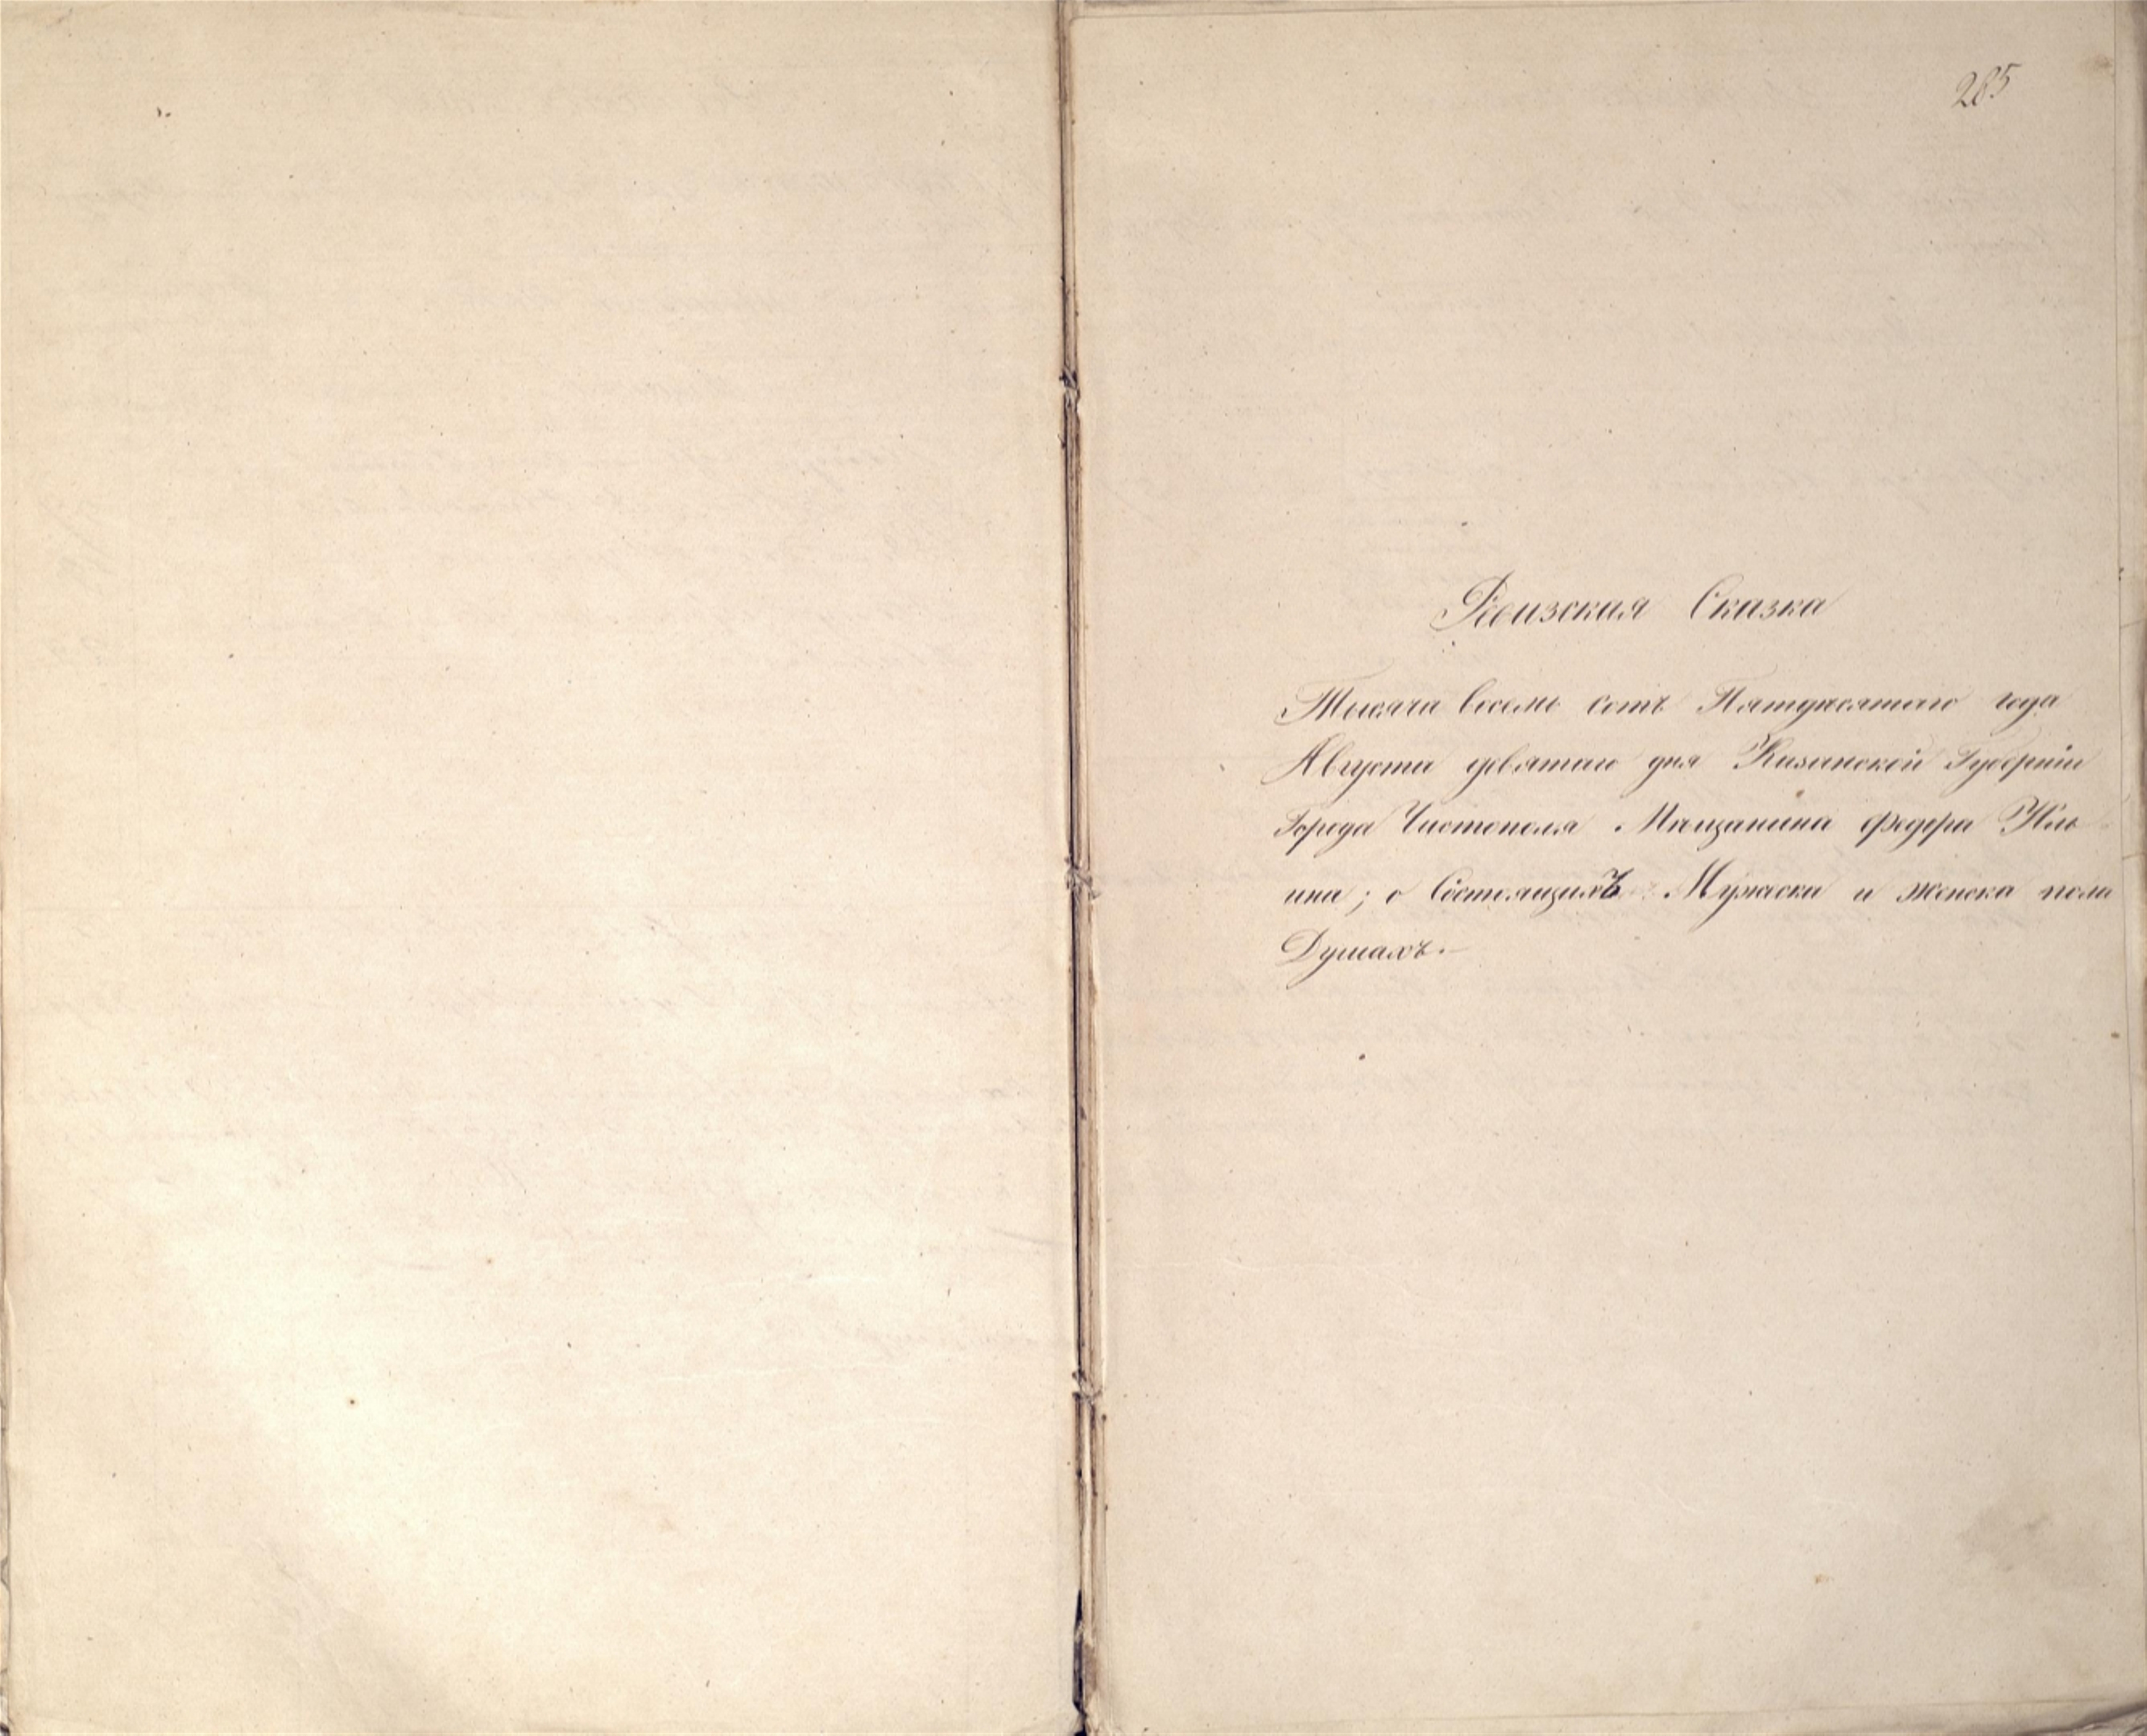 285
Ревизская Сказка
Тысяча восемь сотъ Пятдесятаго года
Августа девятаго дня Казанской Губерніи
Города Чистополя Мѣщанина федора Иль
ина; о Состоящихъ Мужеска и женска пола
Душахъ.—